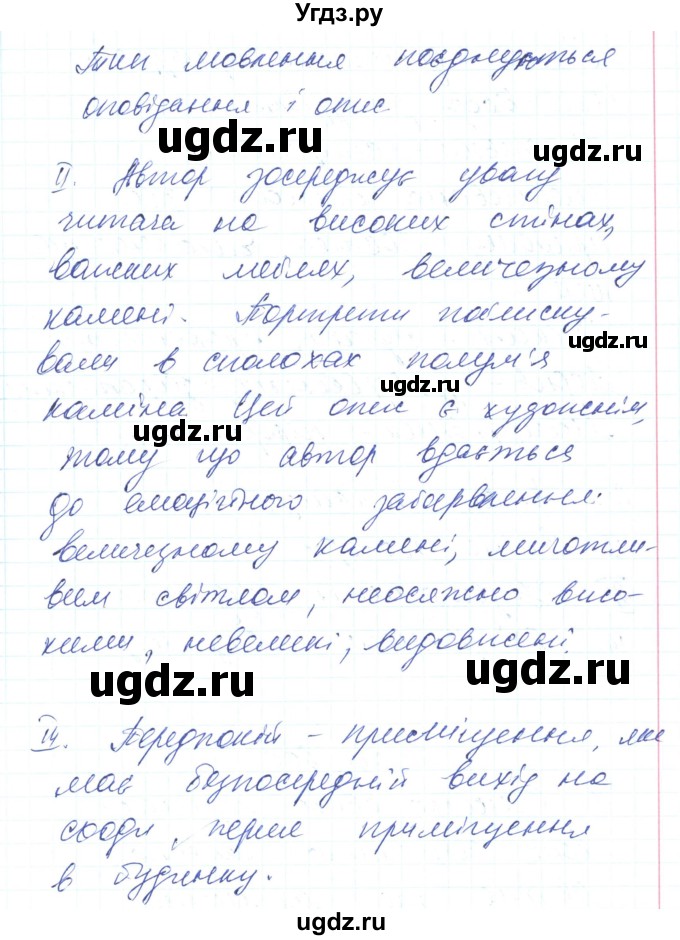 Угдз.ру
Тип мовлення поєднується
оповідання і опис
ugdz.ru
ugdz.ru
II. Автор зосереджує увагу
читача на високих стінах,
важких меблях, величезному
камені. Портрети поблиску-
ugdz.ru
вали в сполохах полум'я
ugdz.ru
каміна Цей опис є художнім,
ugdz.ru
тому що автор вдається
до емоційного забарвлення:
величезному камені, миготли-
вим світлом, неосяжно висо-
кими, невеликі, видовжені.
ugdz.ru
ugdz.ru
III. Передпокій – приміщення, яке
має безпосередній вихід на
сходи, перше приміщення
в будинку.
ugdz.ru